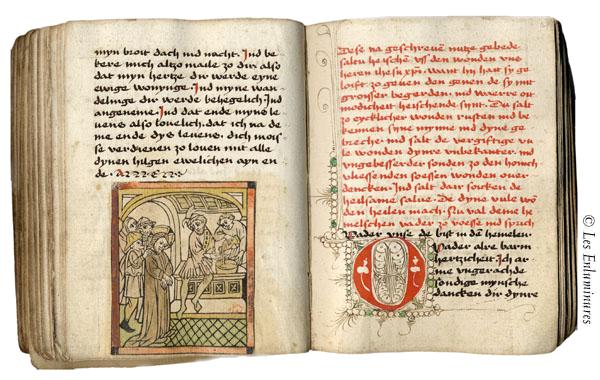 myn broit dach ind nacht. Ind be
kere mich altzo maile zo dir also
dat myn hertze dir werde eyne
ewige wonynge. Ind myne wan
delinge dir werde behegelich Ind
angeneme. Ind dat ende myns le
uens also louelich, dat ich na de
me ende dys leuens, dich mois
se verdienen zo louen mit alle
dynen hilgen ewelichen ayn en
de. A
Dese na geschreuen nutze gebede
saltu heischen vss den wonden vns
heren ihesu xpi. Want hi hait sy ge
loift zo geuen den genen de sy mit
groisser begerden, ind waerre oit
modicheit heischende synt. Du salt
zo eycklicher wonden rusten ind be
kennen syne mynne ind dyne ge
breche ind salt de vergiftige vu
le wonden dynre vnbekanter, ind
vngebesserder sonden zo den honich
vliessenden soessen wonden ouer
dencken. Ind salt dair soicken de
heilsame salue. De dyne vule wo
den heilen mach. Nu val deme he
melschen vader zo voesse ind sprich
Vader vnse de bist in den hemelen.
O Vader alre barm
hertzicheit. Ich ar
me vngerachde
sondige mynsche
dancken dir dynre
© Les Enluminures